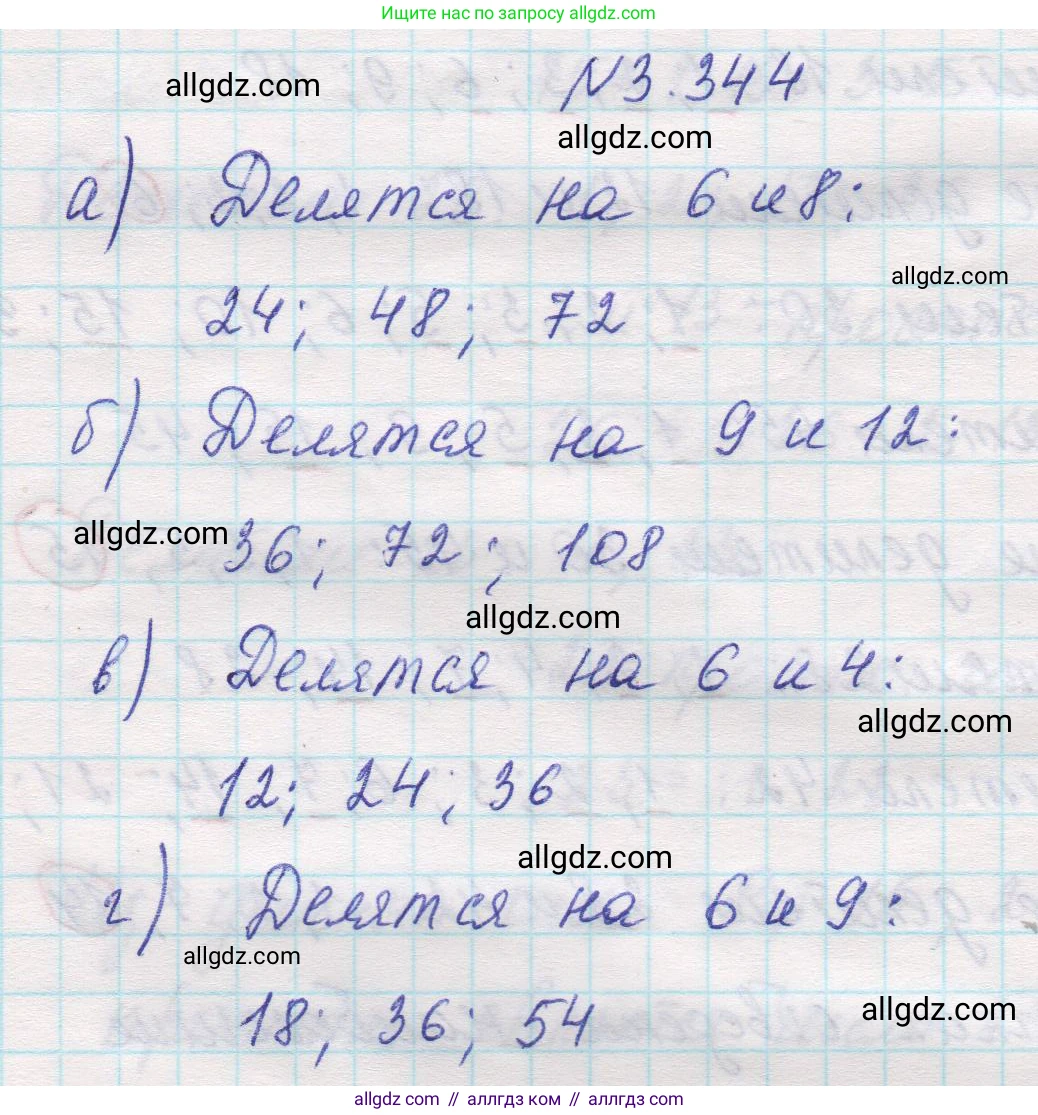 Ищите нас по запросу allgdz.com
allgdz.com
N3.344
allgdz.com
а) Делятся на 6 и 8:
allgdz.com
24; 48; 72
б) Делятся на 9 и 12:
allgdz.com
36; 72; 108
allgdz.com
в) Делятся на 6 и 4:
allgdz.com
12; 24; 36
allgdz.com
г) Делятся на 6 и 9:
allgdz.com
18; 36; 54
allgdz.com
allgdz.com // аллгдз ком // allgdz.com